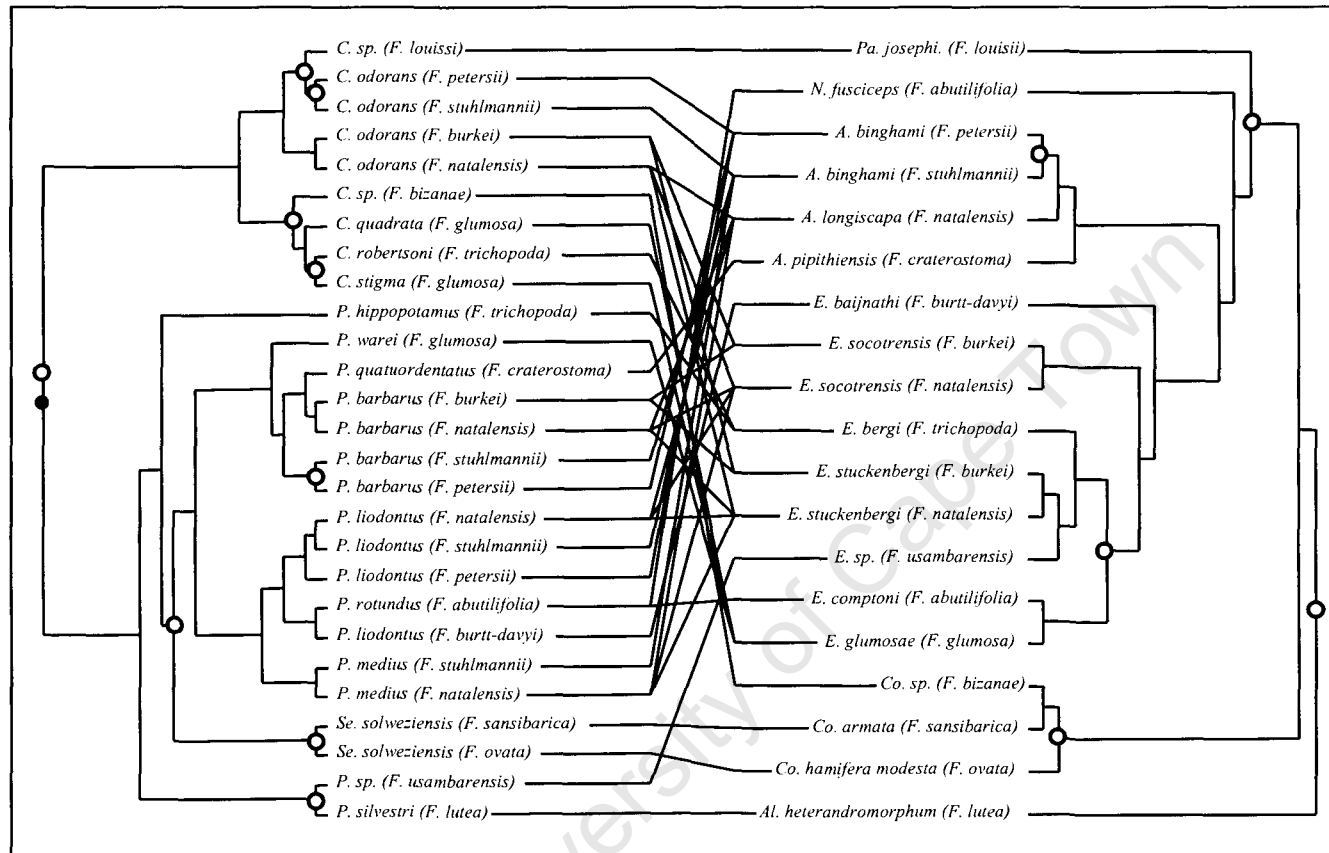 C. sp. (F. louissi)
C. odorans (F. petersii)
C. odorans (F. stuhlmannii)
C. odorans (F. burkei)
C. odorans (F. natalensis)
C. sp. (F. bizanae)
C. quadrata (F. glumosa)
C. robertsoni (F. trichopoda)
C. stigma (F. glumosa)
P. hippopotamus (F. trichopoda)
P. warei (F. glumosa)
P. quatuordentatus (F. craterostoma)
P. barbarus (F. burkei)
P. barbarus (F. natalensis)
P. barbarus (F. stuhlmannii)
P. barbarus (F. petersii)
P. liodontus (F. natalensis)
P. liodontus (F. stuhlmannii)
P. liodontus (F. petersii)
P. rotundus (F. abutilifolia)
P. liodontus (F. burtt-davyi)
P. medius (F. stuhlmannii)
P. medius (F. natalensis)
Se. solweziensis (F. sansibarica)
Se. solweziensis (F. ovata)
P. sp. (F. usambarensis)
P. silvestri (F. lutea)
Pa. josephi. (F. louisii)
N. fusciceps (F. abutilifolia)
A. binghami (F. petersii)
A. binghami (F. stuhlmannii)
A. longiscapa (F. natalensis)
A. pipithiensis (F. craterostoma)
E. baijnathi (F. burtt-davyi)
E. socotrensis (F. burkei)
E. socotrensis (F. natalensis)
E. bergi (F. trichopoda)
E. stuckenbergi (F. burkei)
E. stuckenbergi (F. natalensis)
E. sp. (F. usambarensis)
E. comptoni (F. abutilifolia)
E. glumosae (F. glumosa)
Co. sp. (F. bizanae)
Co. armata (F. sansibarica)
Co. hamifera modesta (F. ovata)
Al. heterandromorphum (F. lutea)
versity of Cape Town